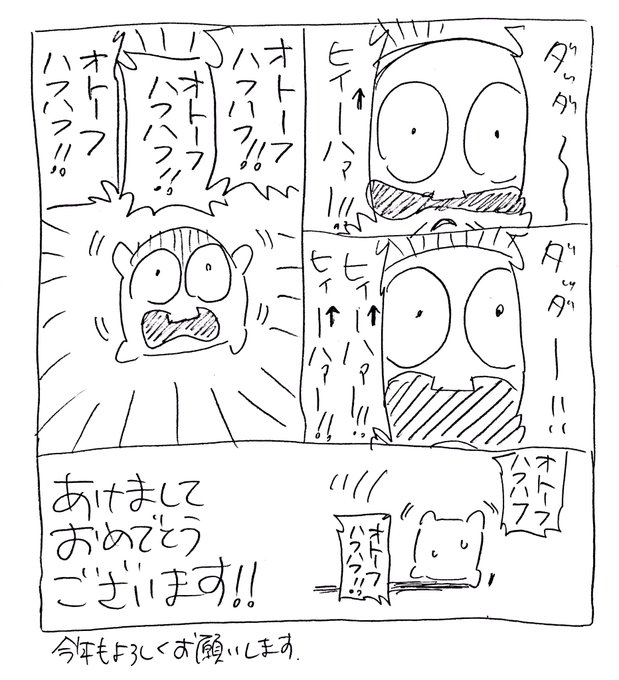 ダッダ〜
ヒィ↑ーハァー!!
ダッダー!!
ヒィ↑ーハァー!!
ヒィ↑ーハァー!!
オトーフ
ハフハフ!!
オトーフ
ハフハフ!!
オトーフ
ハフハフ!!
オトーフ
ハフハフ
オトーフ
ハフハフ!!
あけまして
おめでとう
ございます!!
今年もよろしくお願いします.